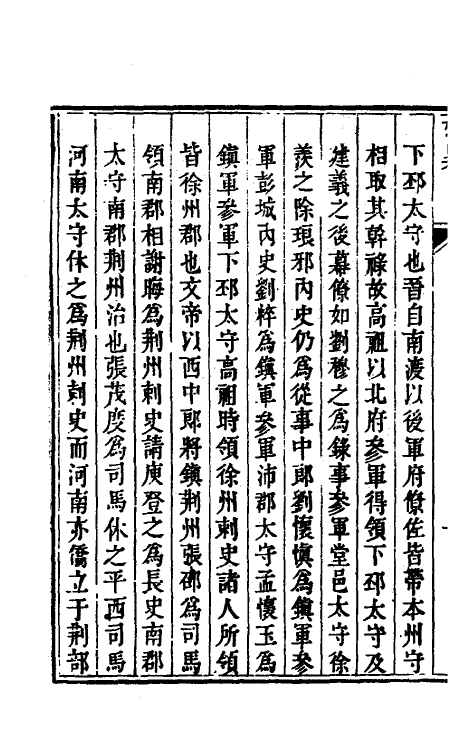 下邳太守也晉自南渡以後軍府僚佐皆帶本州守
相取其幹祿故高祖以北府參軍得領下邳太守及
建義之後幕僚如劉穆之爲錄事參軍堂邑太守徐
羨之除琅邪內史仍爲從事中郎劉懷愼爲鎭軍參
軍彭城內史劉粹爲鎭軍參軍沛郡太守孟懷玉爲
鎭軍參軍下邳太守高祖時領徐州刺史諸人所領
皆徐州郡也文帝以西中郎將鎭荆州張邵爲司馬
領南郡相謝晦爲荆州刺史請庾登之爲長史南郡
太守南郡荆州治也張茂度爲司馬休之平西司馬
河南太守休之爲荆州刺史而河南亦僑立于荆部